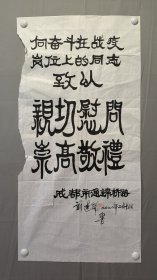 向奋斗在战疫
岗位上的同志
致以
親切慰問
崇高敬禮
成都市通錦桥路